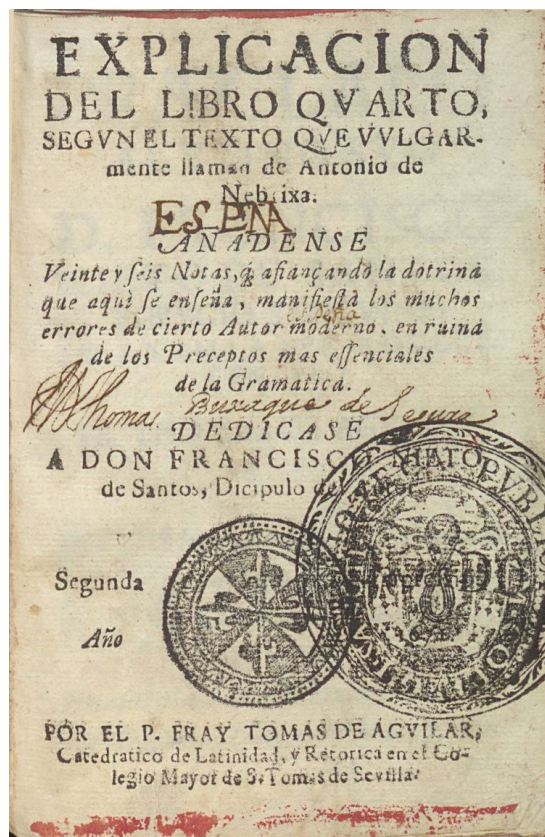 EXPLICACION
DEL LIBRO QVARTO,
SEGVN EL TEXTO QVE VVLGAR-
mente llaman de Antonio de
Nebrixa.
ESPEÑA
AÑADENSE
Veinte y seis Notas, q̃ afiançando la dotrina
que aqui se enseña, manifiestã los muchos
errores de cierto Autor moderno, en ruina
de los Preceptos mas essenciales
de la Gramatica.
Thomas de Segura
DEDICASE
A DON FRANCISCO NIETO
de Santos, Dicipulo del Autor
Segunda
Año 1671
POR EL P. FRAY TOMAS DE AGVILAR,
Catedratico de Latinidad, y Retorica en el Co-
legio Mayor de S. Tomas de Sevilla.